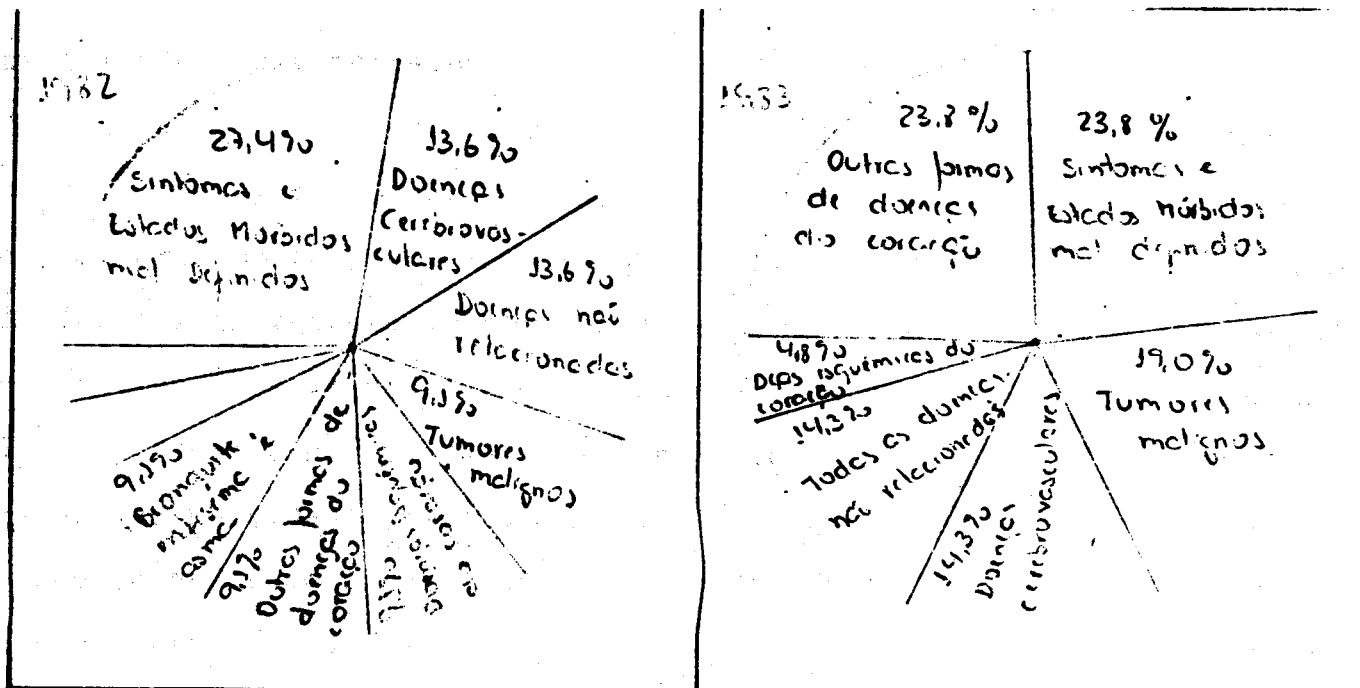 1982
27,4%
Sintomas e
Estados Mórbidos
mal Definidos
13,6%
Doenças
Cerebrovas-
culares
13,6%
Doenças não
relacionadas
9,1%
Tumores
malignos
9,1%
Outras formas de
doenças do
coração
9,1%
Bronquite
enfisema e
asma
1983
23,8%
Outras formas
de doenças
do coração
23,8%
Sintomas e
Estados Mórbidos
mal definidos
19,0%
Tumores
malignos
14,3%
Doenças
cerebrovasculares
14,3%
Todas as doenças
não relacionadas
4,8%
isquêmicas do
coração